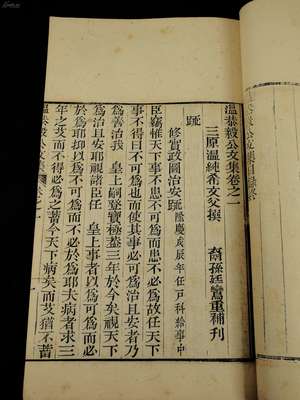 温恭毅公文集卷之一
三原温純希文父撰 裔孫廷鸞重補刊
疏
修實政圖治安疏 隆慶庚辰年任戸科給事中
臣竊惟天下事不患不可為而患不必為故任天下
事不得曰不可為也而使其事必可為治且安者乃
為善治我 皇上嗣登寶極蓋三年於今矣視天下
為治且安耶視諸臣任 皇上事者以為可為而必
於為耶抑以為可為而不必於為耶夫病者求三
年之艾而不得必為之蓄今天下病矣而艾猶不蓄
温恭毅公文集 卷之一